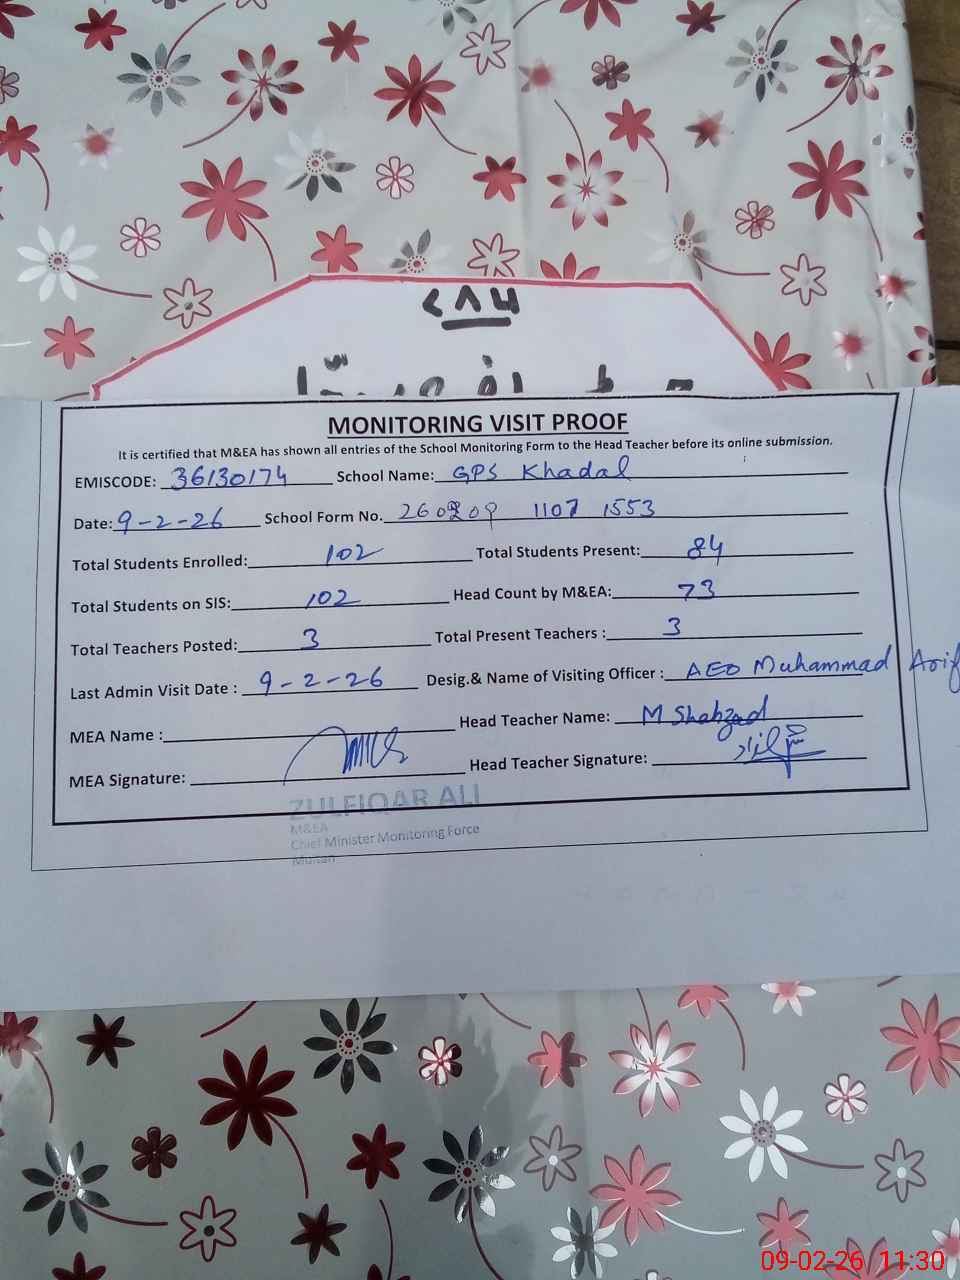 ۷۸۶
MONITORING VISIT PROOF
It is certified that M&EA has shown all entries of the School Monitoring Form to the Head Teacher before its online submission.
EMISCODE: 36130174 School Name: GPS Khadal
Date: 9-2-26 School Form No. 260209 1107 1553
Total Students Enrolled: 102 Total Students Present: 84
Total Students on SIS: 102 Head Count by M&EA: 73
Total Teachers Posted: 3 Total Present Teachers : 3
Last Admin Visit Date : 9-2-26 Desig.& Name of Visiting Officer : AEO Muhammad Arif
MEA Name : Head Teacher Name: M Shahzad
MEA Signature: Head Teacher Signature: شہزاد
ZULFIQAR ALI
M&EA
Chief Minister Monitoring Force
Multan
09-02-26 11:30